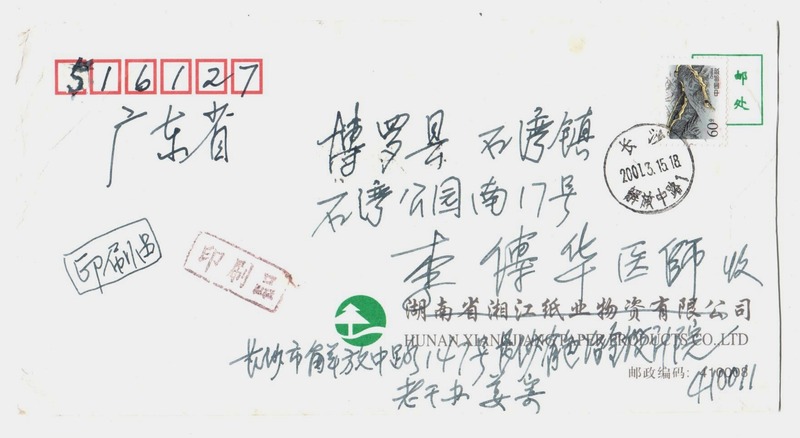 516127
广东省
博罗县 石湾镇
石湾公园南17号
李傅华医师 收
邮
处
中国邮政
60分
长沙
2001.3.15.18
解放中路
印刷品
印刷品
湖南省湘江纸业物资有限公司
HUNAN XIANGJIANG PAPER PRODUCTS CO.,LTD
长沙市解放中路147号
邮政编码: 410008
410011
老干办 姜寄